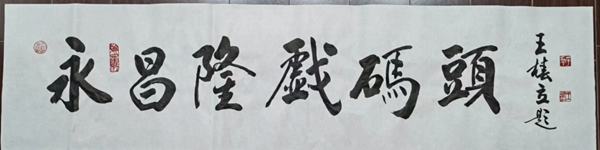 永昌隆戲碼頭
王樁立题